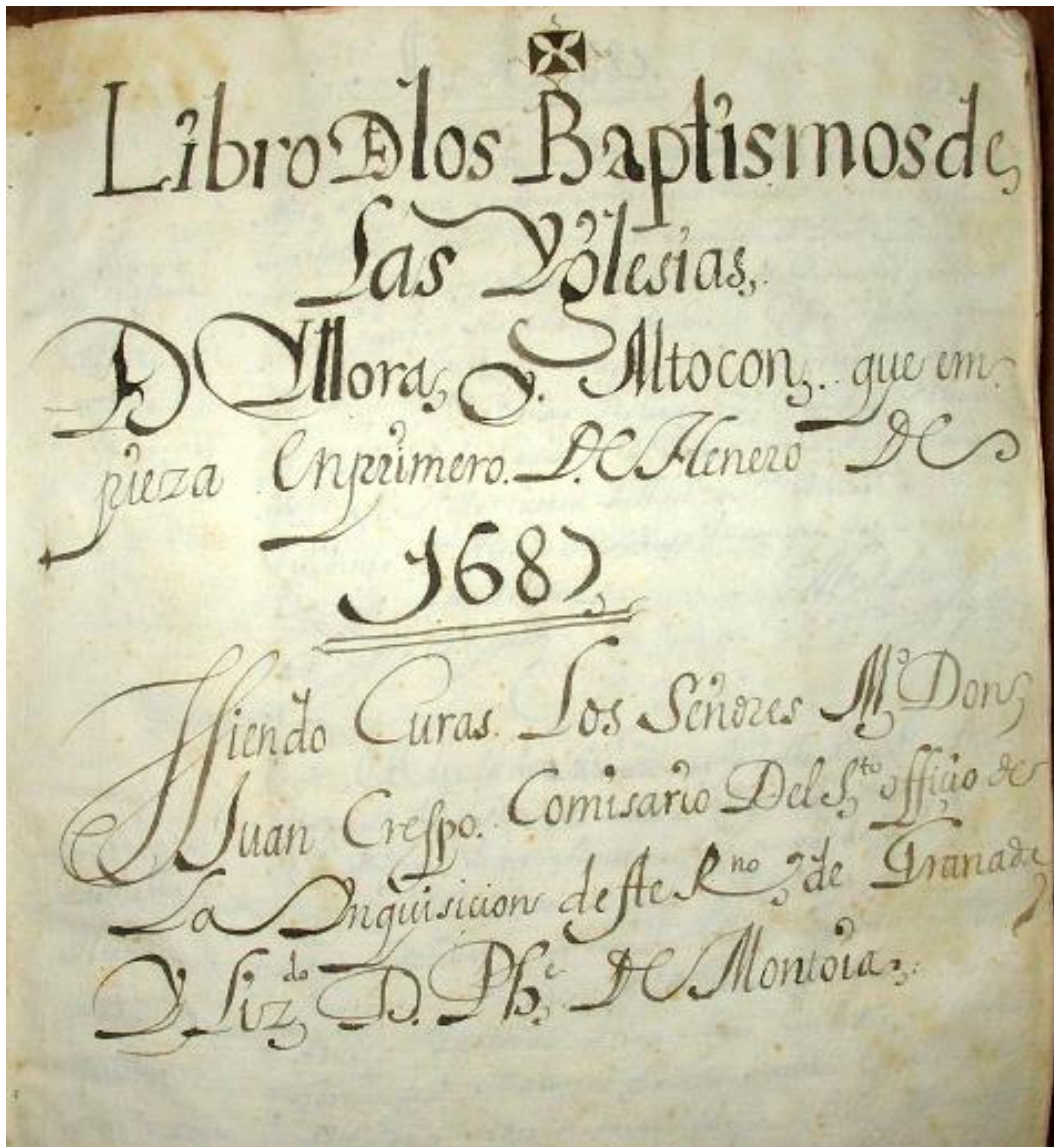 Libro Dlos Baptismos de
Las Yglesias,
D Yllora, Y. Alltocon,. que em-
pieza Enprimero. De Henero De
1687
Siendo Curas. Los Señores Mº Don
Juan Cresspo. Comisario Del Sto officio de
La Inquisicion de ste Rno de Granada
Y Lizdo D. Phe De Montoia.